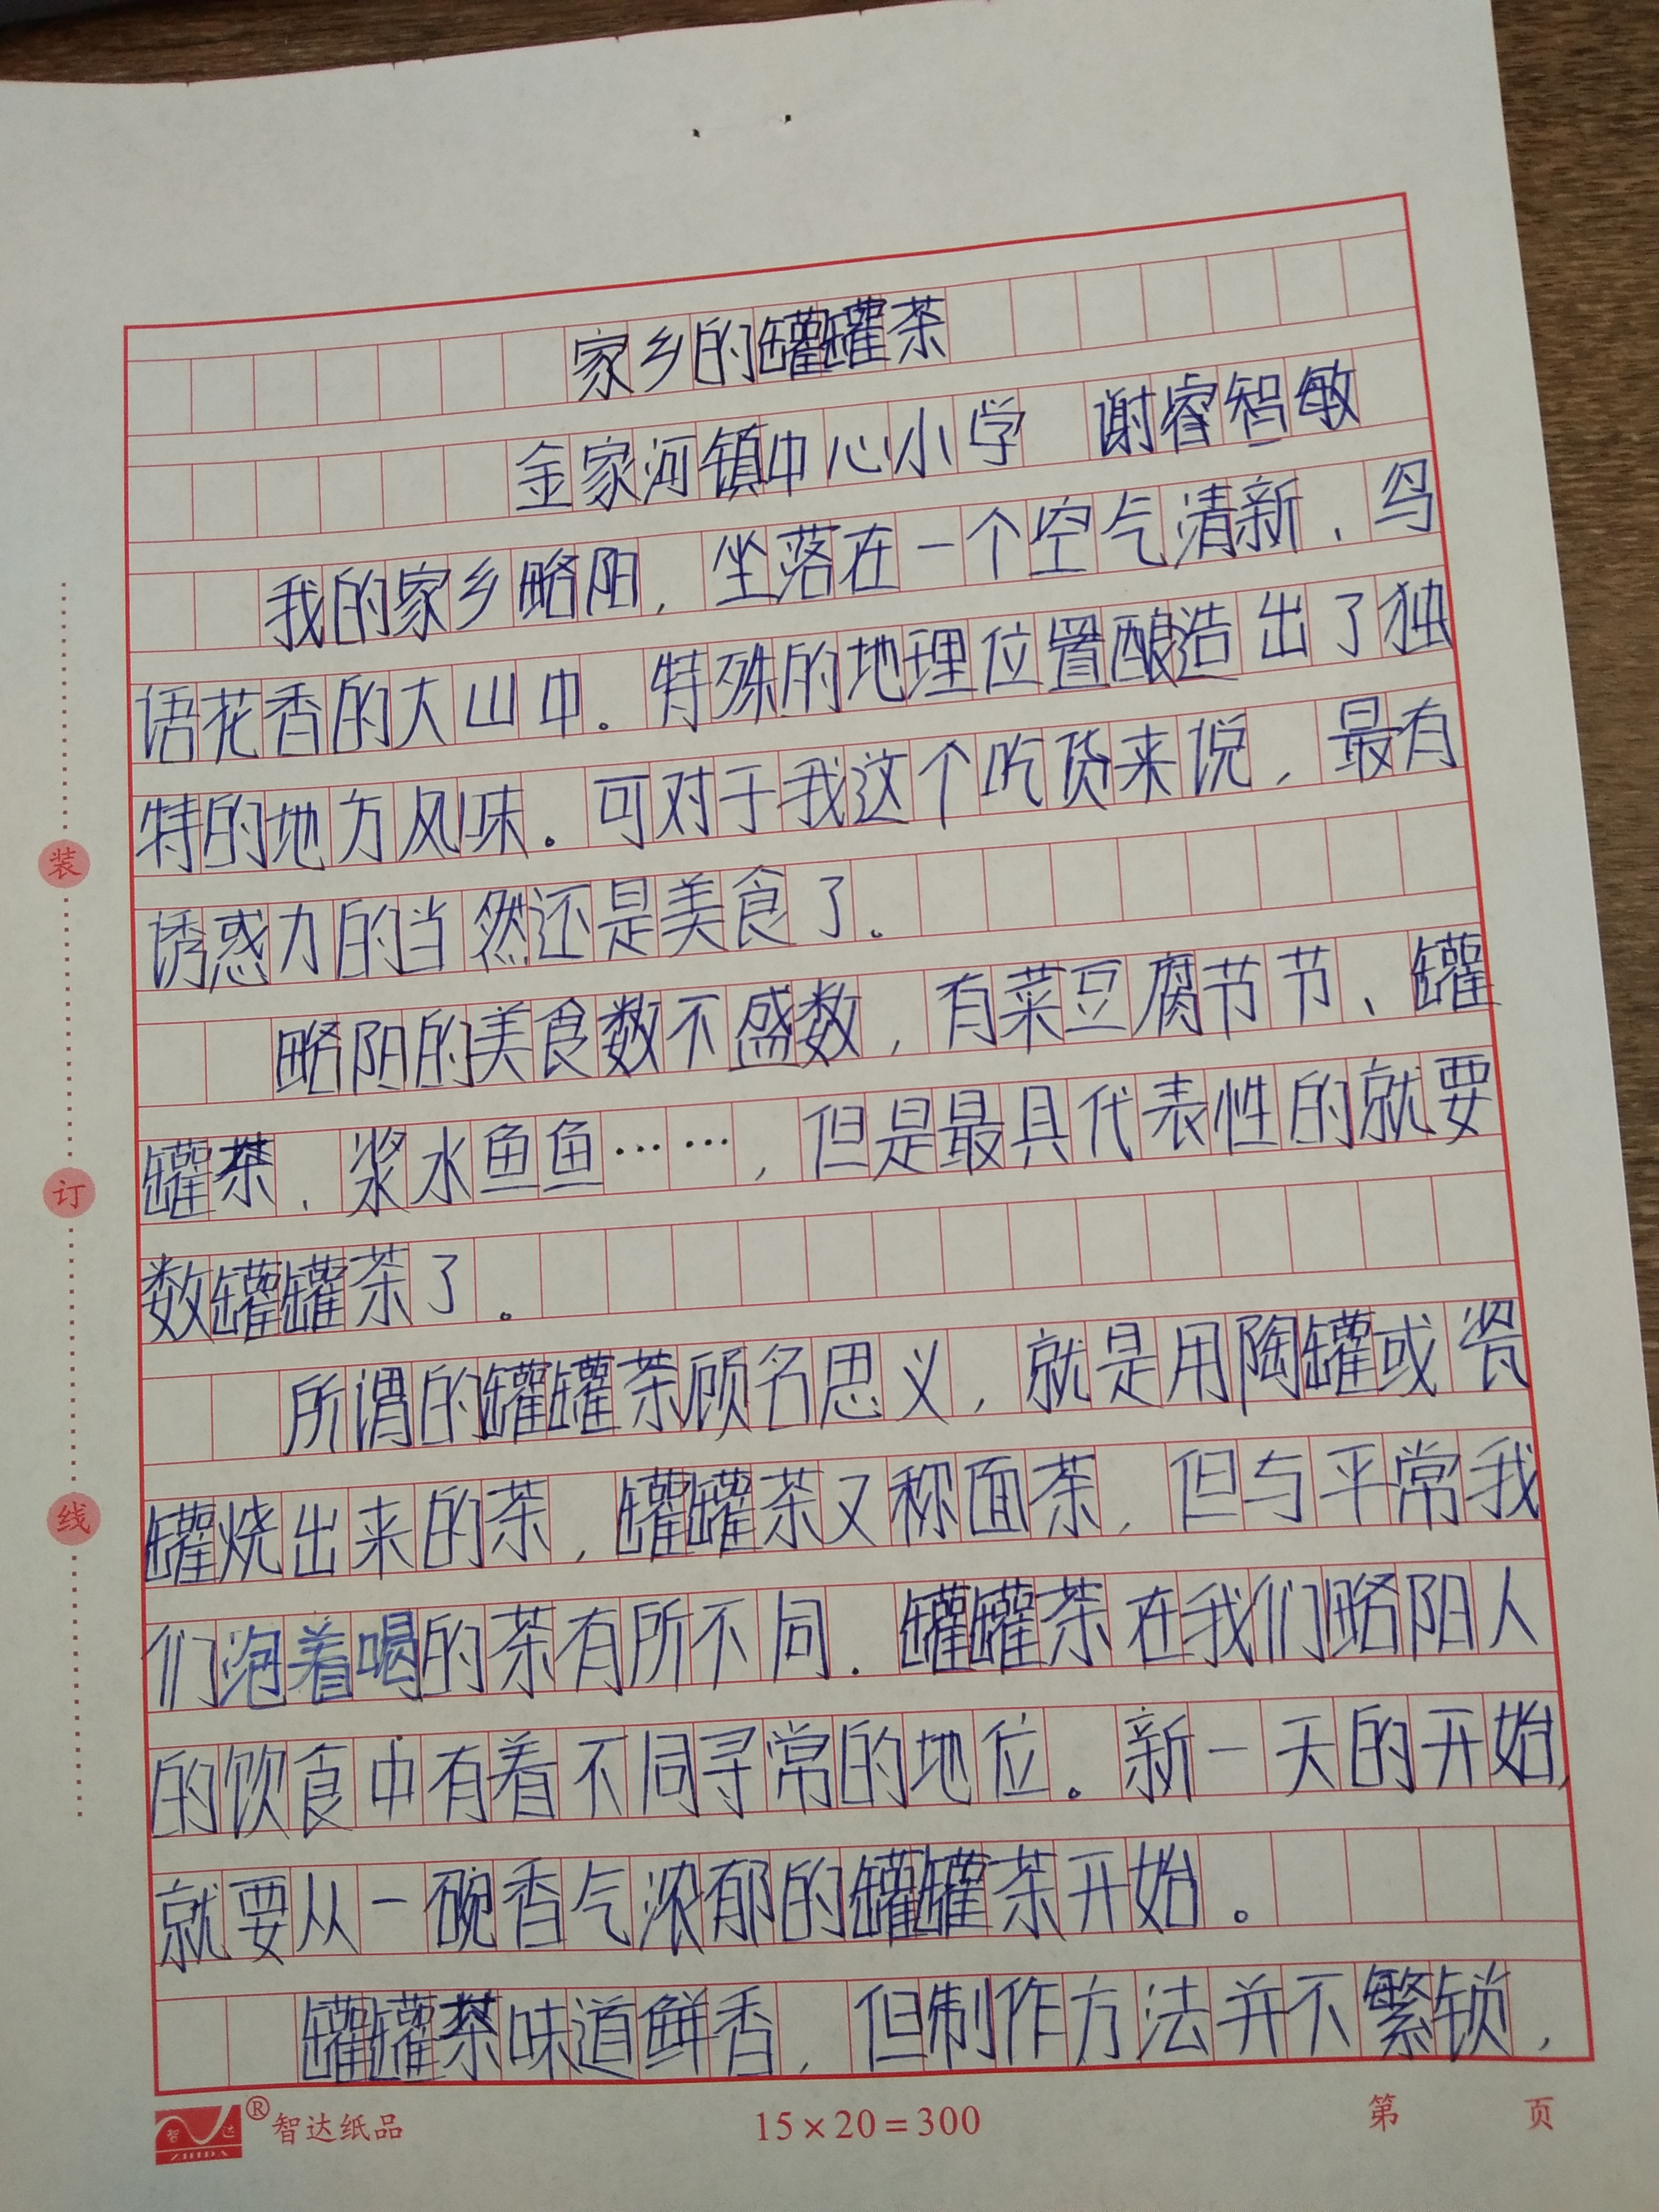 家乡的罐罐茶
金家河镇中心小学 谢睿智敏
我的家乡略阳，坐落在一个空气清新、鸟
语花香的大山中。特殊的地理位置酿造出了独
特的地方风味。可对于我这个吃货来说，最有
诱惑力的当然还是美食了。
略阳的美食数不盛数，有菜豆腐节节、罐
罐茶、浆水鱼鱼……，但是最具代表性的就要
数罐罐茶了。
所谓的罐罐茶顾名思义，就是用陶罐或瓷
罐烧出来的茶，罐罐茶又称面茶，但与平常我
们泡着喝的茶有所不同．罐罐茶在我们略阳人
的饮食中有着不同寻常的地位。新一天的开始，
就要从一碗香气浓郁的罐罐茶开始。
罐罐茶味道鲜香，但制作方法并不繁锁，
装
订
线
智达
ZHIDA
® 智达纸品
15×20=300
第 页